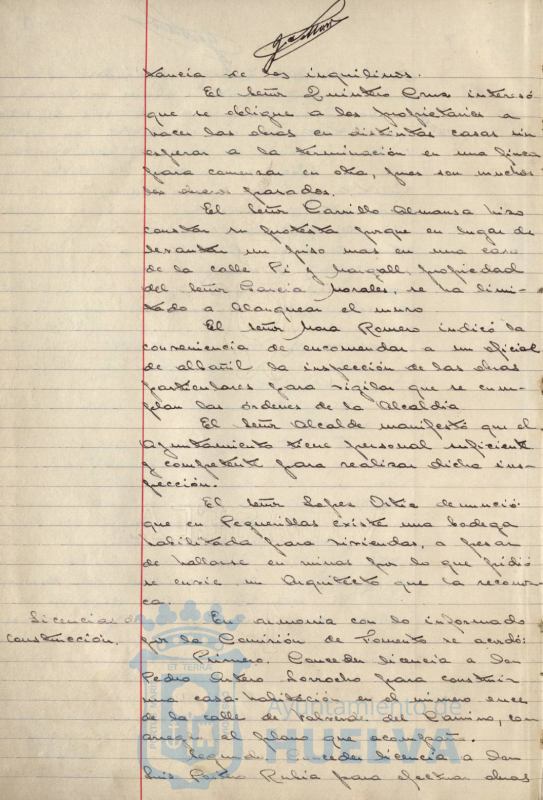 tancia de los inquilinos.
El Señor Quintero Cruz interesó
que se obligue a los propietarios a
hacer las obras en distintas casas sin
esperar a la terminación en una finca
para comenzar en otra, pues son muchos
los obreros parados.
El Señor Carrillo Almansa hizo
constar su protesta porque en lugar de
levantar un piso mas en una casa
de la calle Pi y Margall, propiedad
del Señor García Morales, se ha limi-
tado a blanquear el muro
El Señor Mora Romero indicó la
conveniencia de encomendar a un oficial
de albañil la inspección de las obras
particulares para vigilar que se cum-
plan las órdenes de la Alcaldía
El Señor Alcalde manifestó que el
Ayuntamiento tiene personal suficiente
y competente para realizar dicha ins-
pección.
El Señor Lopez Ortiz denunció
que en Peguerillas existe una bodega
habilitada para viviendas, a pesar
de hallarse en ruinas por lo que pidió
se envie un Arquitecto que la reconoz-
ca.
Licencias de
construcción.
En armonia con lo informado
por la Comisión de Fomento se acordó:
Primero. Conceder licencia a Don
Pedro Artero Lorrocho para construir
una casa habitación en el número once
de la calle de Valverde del Camino, con
arreglo al plano que acompaña.
Segundo. Conceder licencia a Don
Luis Rubia para efectuar obras
ET TERRA
Ayuntamiento de
HUELVA